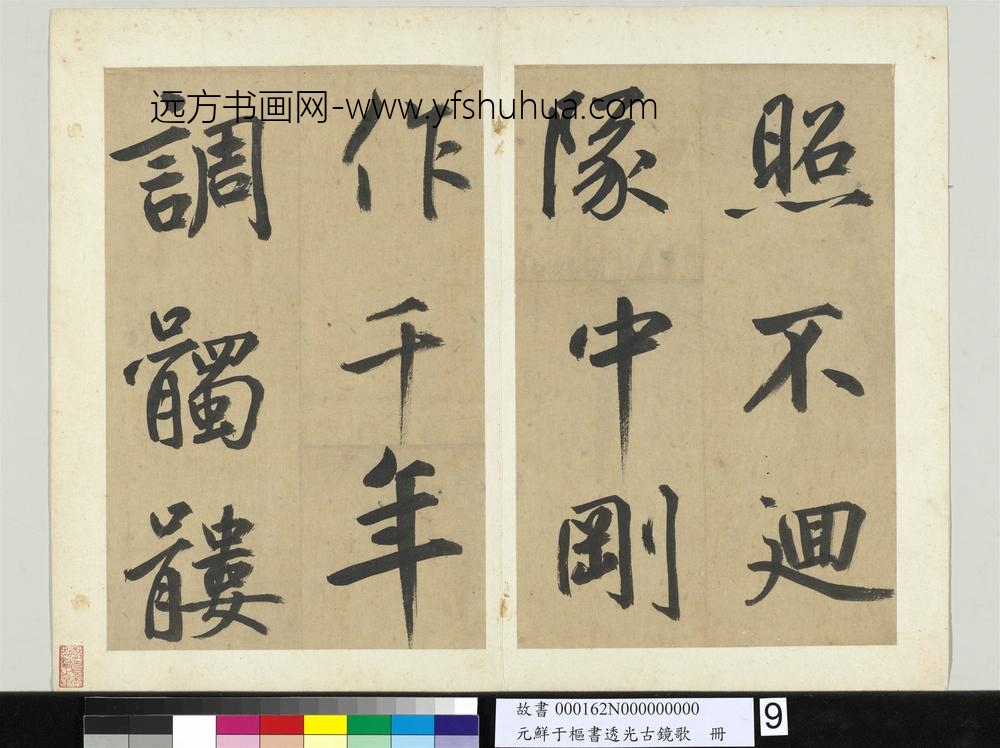 远方书画网-www.yfshuhua.com
照不迴
隊中剛
作千年
調髑髏
故書 000162N000000000
元鮮于樞書透光古鏡歌 冊
9